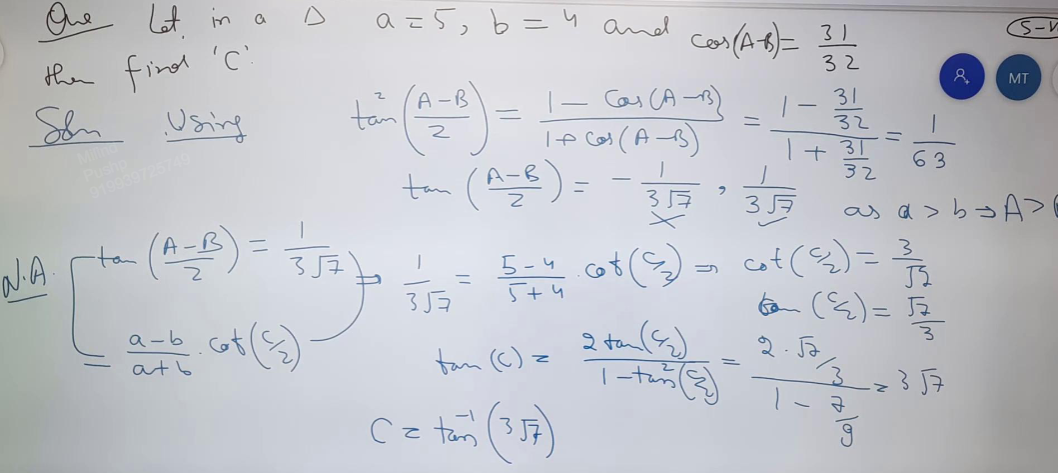 Que Let in a Δ a = 5, b = 4 and cos(A-B) = 31/32
then find 'C'.
Soln Using tan²((A-B)/2) = (1 - Cos(A-B))/(1 + cos(A-B)) = (1 - 31/32)/(1 + 31/32) = 1/63
tan((A-B)/2) = -1/(3√7) ×, 1/(3√7) ✓ as a > b ⇒ A >
N.A. tan((A-B)/2) = 1/(3√7) ⇒ 1/(3√7) = (5-4)/(5+4) cot(C/2) ⇒ cot(C/2) = 3/√7
tan(C/2) = √7/3
= (a-b)/(a+b) · cot(C/2)
tan(C) = (2 tan(C/2))/(1 - tan²(C/2)) = (2·√7/3)/(1 - 7/9) = 3√7
C = tan⁻¹(3√7)
MT